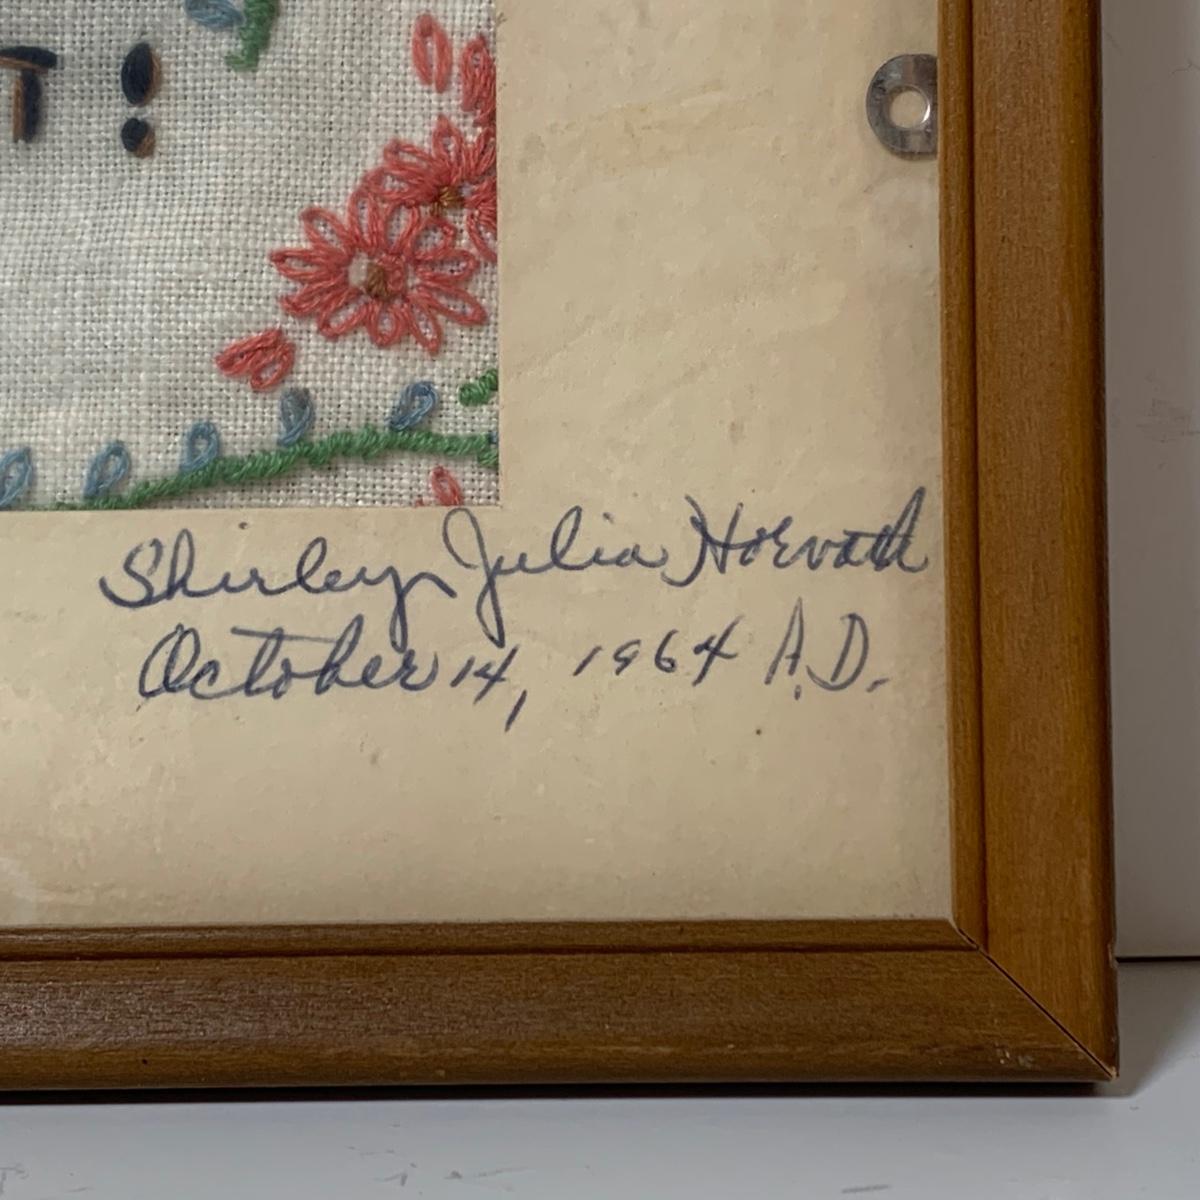 T!
Shirley Julia Horvath
October 14, 1964 A.D.